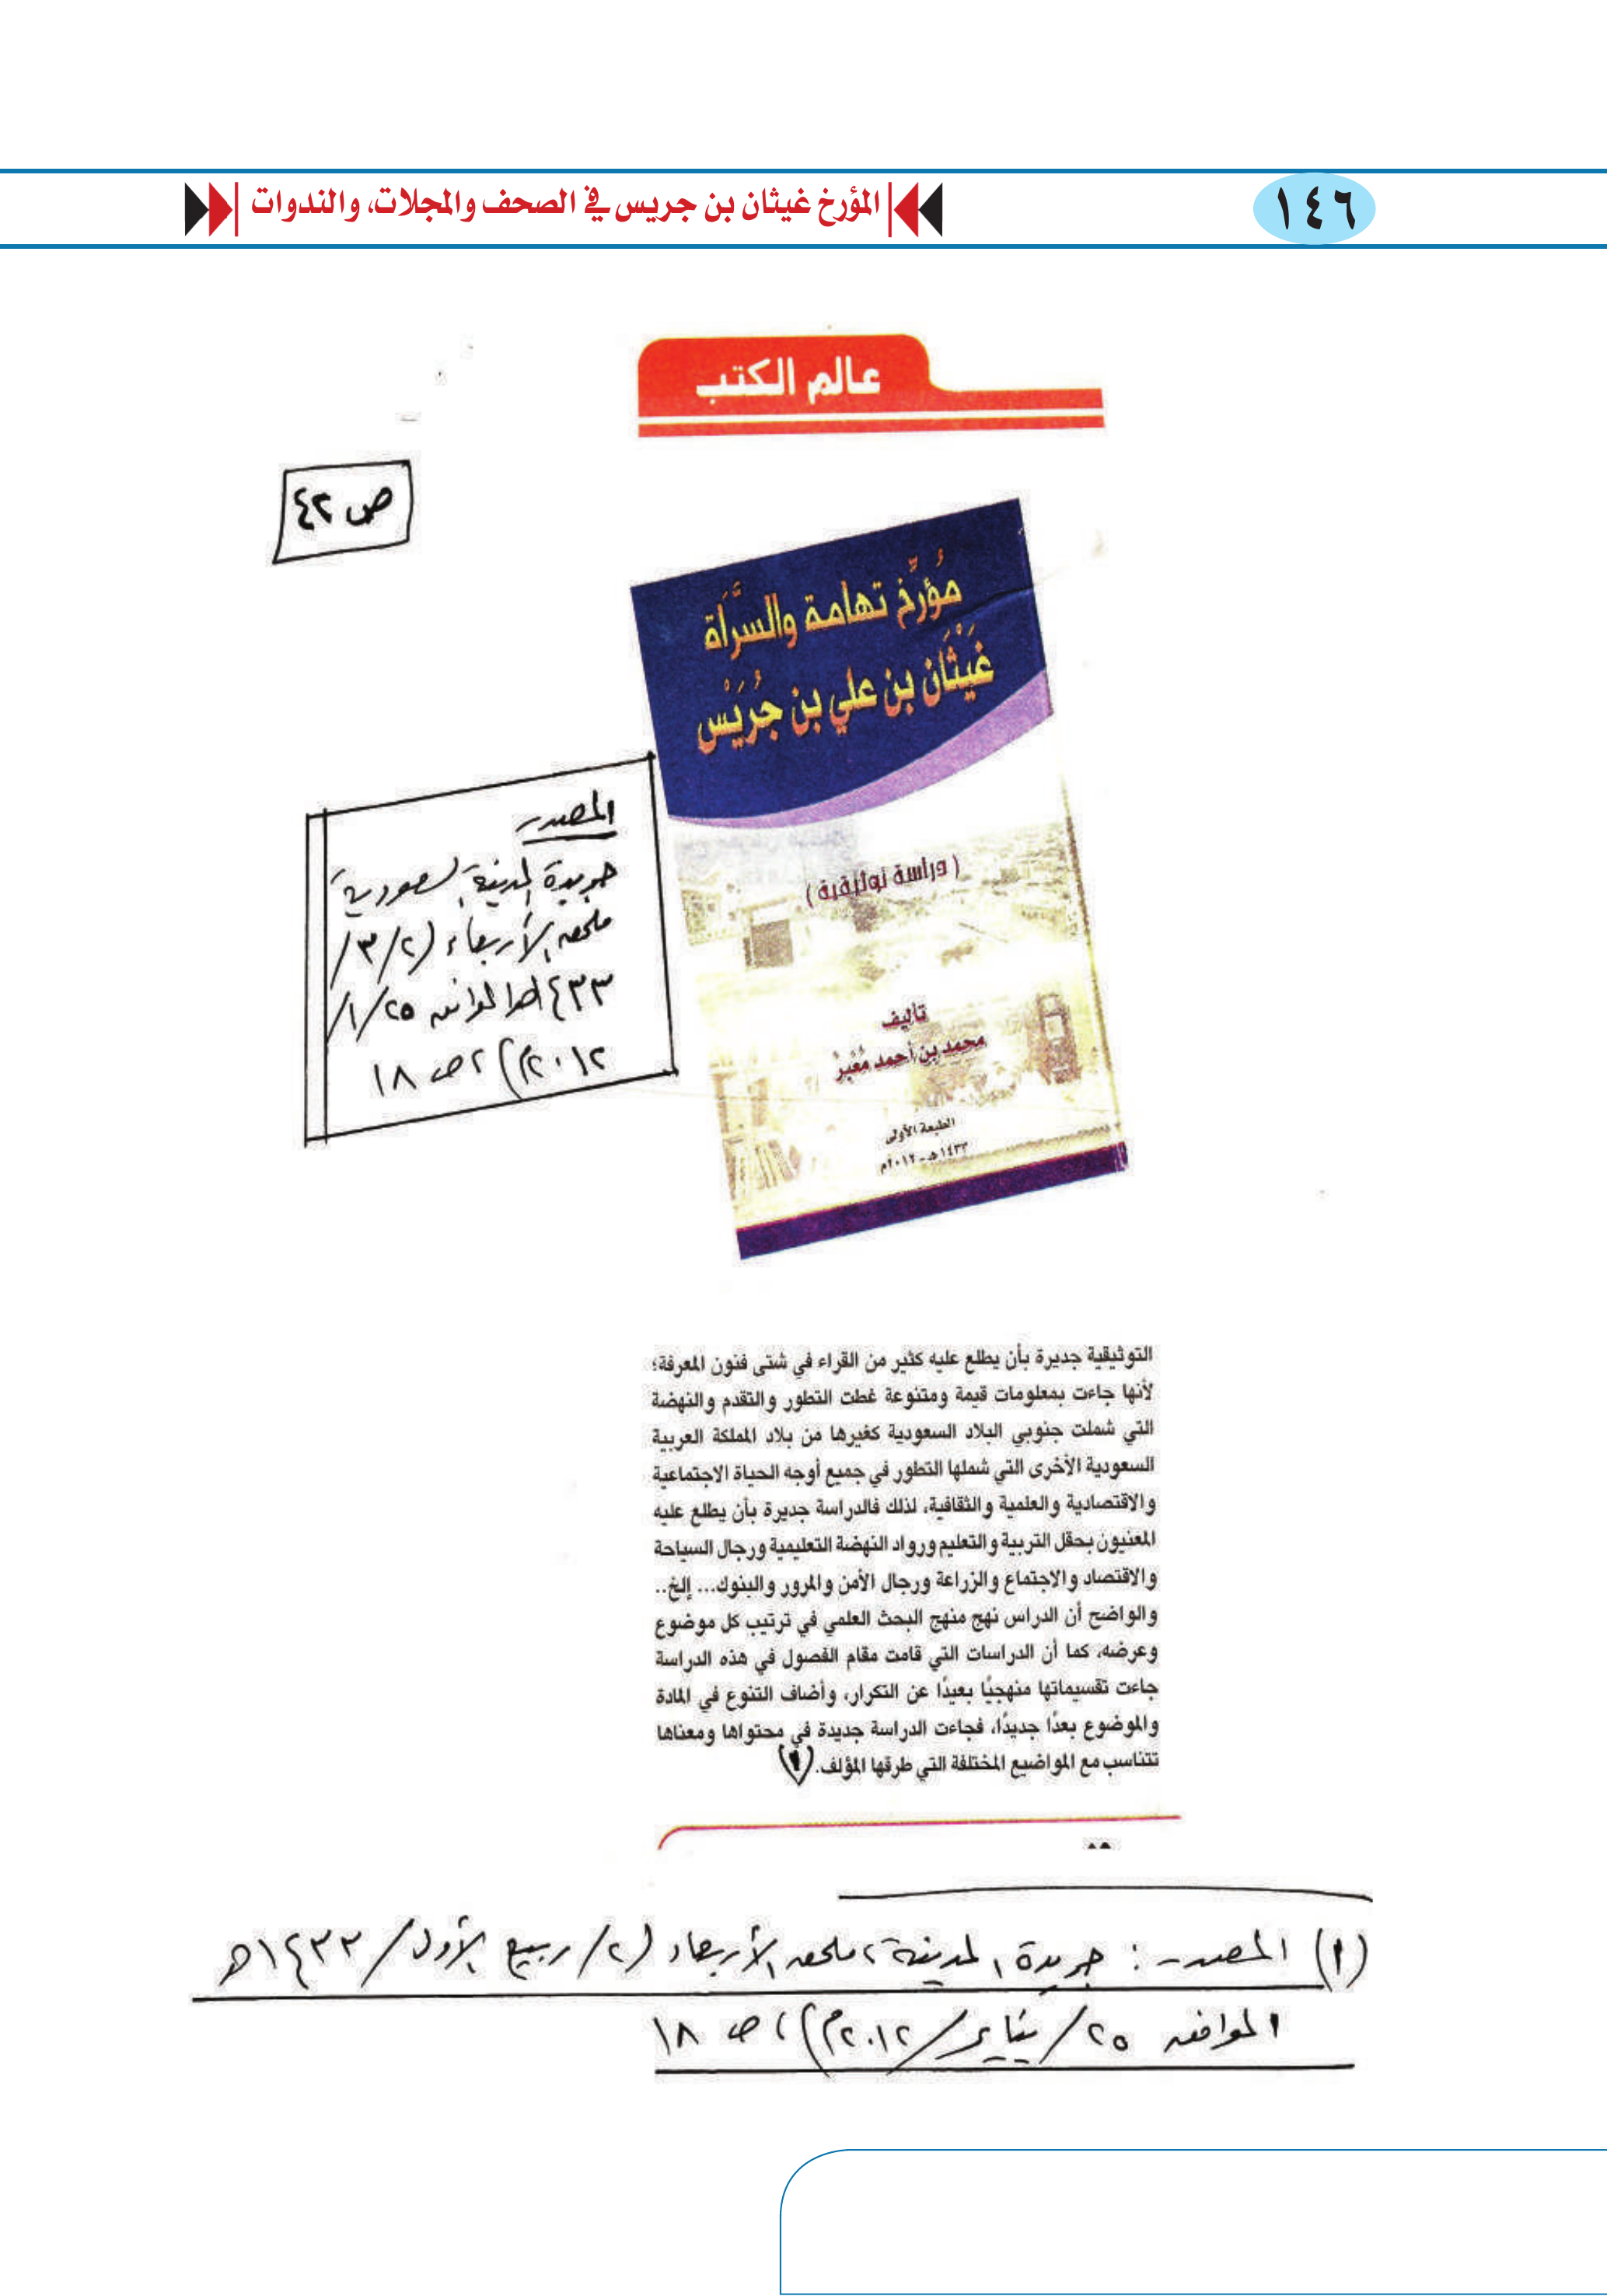 ١٤٦
المؤرخ غيثان بن جريس في الصحف والمجلات، والندوات
عالم الكتب
ص ٤٢
مُؤرِّخ تهامة والسَّرَاة
غَيْثَان بن علي بن جُرَيْس
(دراسة توثيقية)
تأليف
محمد بن أحمد مُعَبِّر
الطبعة الأولى
١٤٣٣هـ - ٢٠١٢م
المصدر
جريدة المدينة السعودية
ملحق الأربعاء (٢/٣/
١٤٣٣هـ الموافق ٢٥/١/
٢٠١٢م)، ص ١٨
التوثيقية جديرة بأن يطلع عليه كثير من القراء في شتى فنون المعرفة؛
لأنها جاءت بمعلومات قيمة ومتنوعة غطت التطور والتقدم والنهضة
التي شملت جنوبي البلاد السعودية كغيرها من بلاد المملكة العربية
السعودية الأخرى التي شملها التطور في جميع أوجه الحياة الاجتماعية
والاقتصادية والعلمية والثقافية، لذلك فالدراسة جديرة بأن يطلع عليه
المعنيون بحقل التربية والتعليم ورواد النهضة التعليمية ورجال السياحة
والاقتصاد والاجتماع والزراعة ورجال الأمن والمرور والبنوك... إلخ..
والواضح أن الدراس نهج منهج البحث العلمي في ترتيب كل موضوع
وعرضه، كما أن الدراسات التي قامت مقام الفصول في هذه الدراسة
جاءت تقسيماتها منهجيًا بعيدًا عن التكرار، وأضاف التنوع في المادة
والموضوع بعدًا جديدًا، فجاءت الدراسة جديدة في محتواها ومعناها
تتناسب مع المواضيع المختلفة التي طرقها المؤلف.(١)
(١) المصدر: جريدة المدينة، ملحق الأربعاء (٢/ربيع الأول/١٤٣٣هـ
الموافق ٢٥/يناير/٢٠١٢م)، ص ١٨